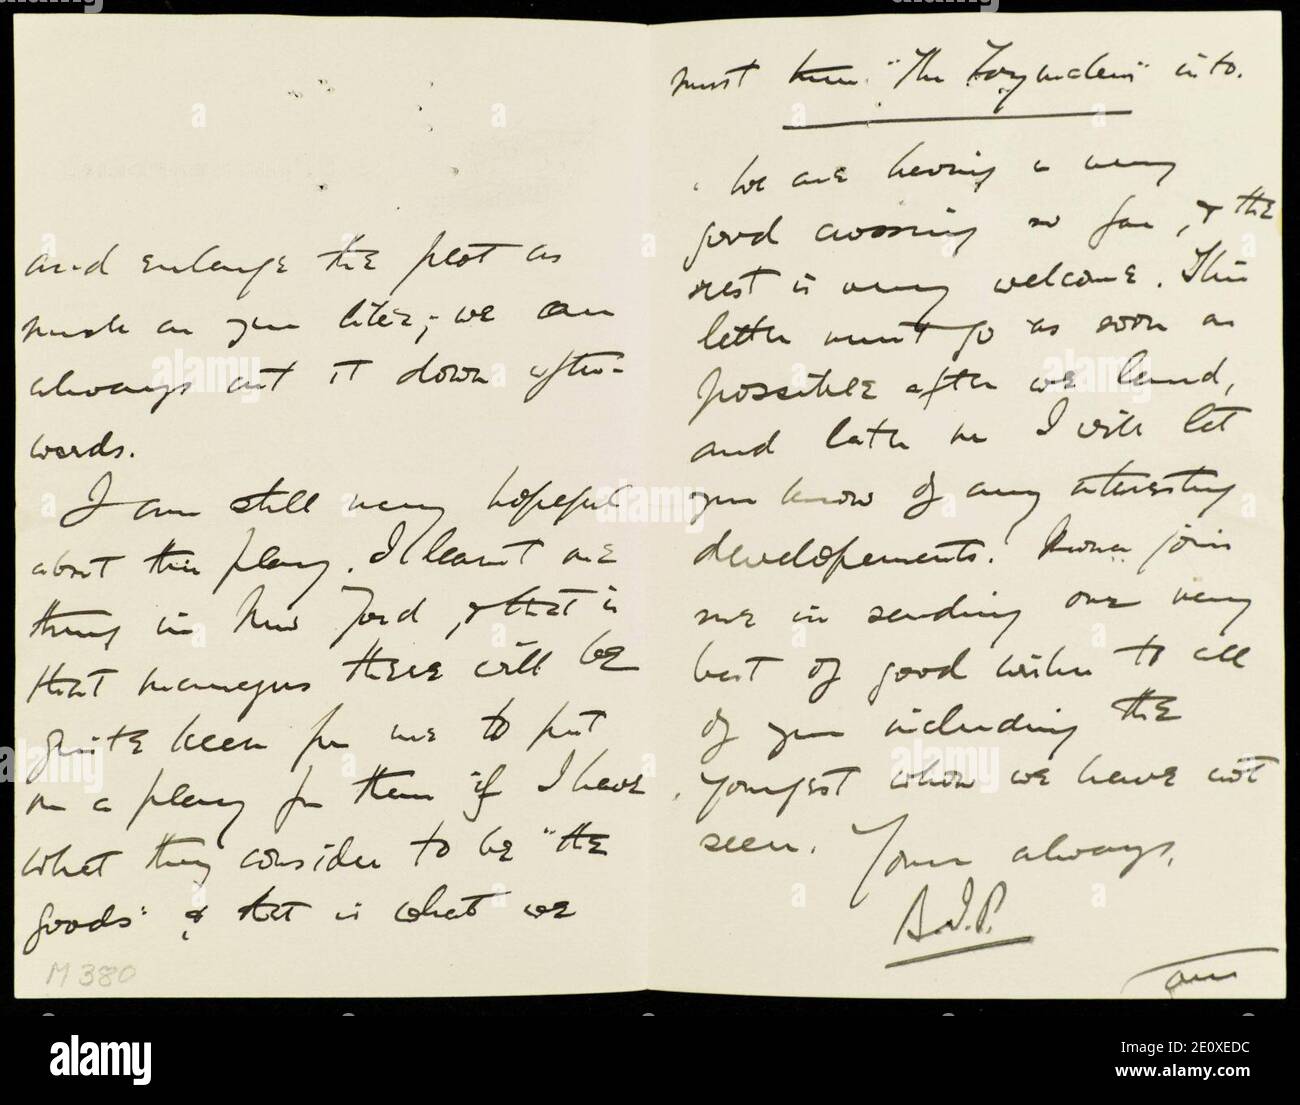 and enlarge the plot as
much as you like; we can
always cut it down after-
wards.
I am still very hopeful
about this play. I learnt one
thing in New York, & that is
that managers there will be
quite keen for me to put
on a play for them if I have
what they consider to be "the
goods" & that is what we
M 380
must turn "The Toymakers" into.
We are having a very
good crossing so far, & the
rest is very welcome. This
letter must go as soon as
possible after we land,
and later on I will let
you know of any interesting
developements. join
me in sending our very
best of good wishes to all
of you including the
youngest whom we have not
seen. Yours always,
alamy
Image ID: 2E0XEDC
www.alamy.com